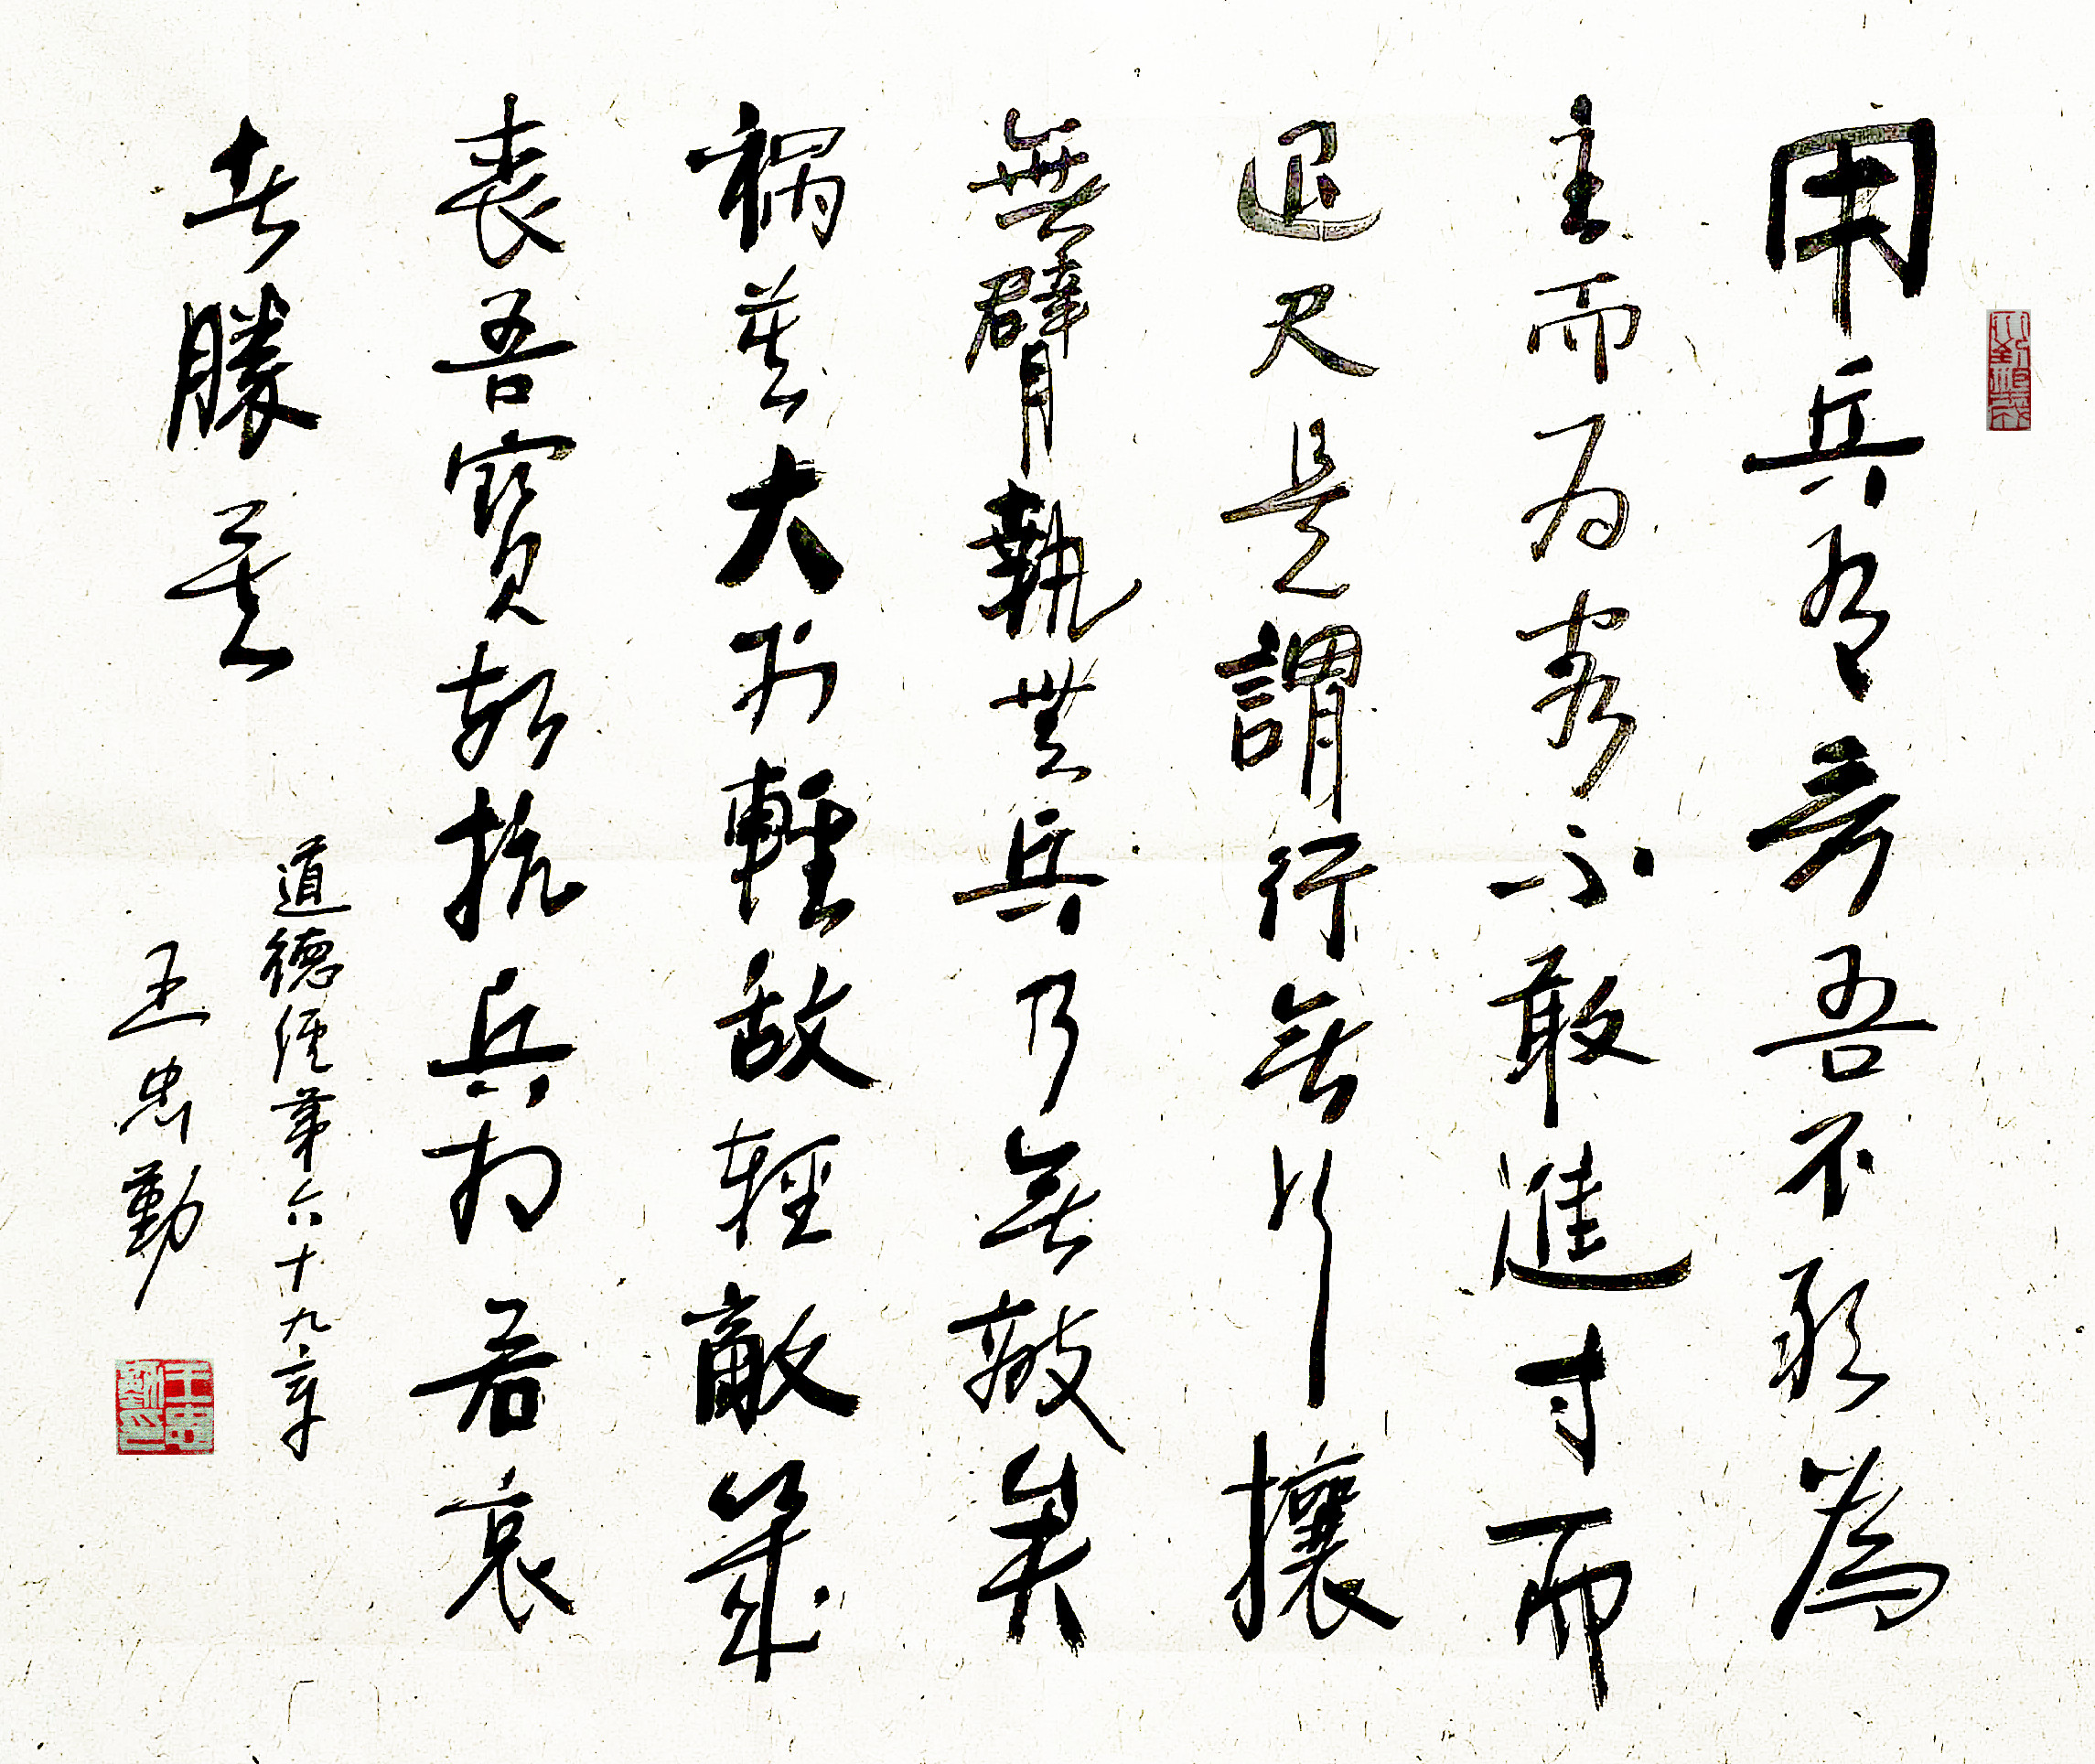 用兵有言吾不敢為
主而为客不敢進寸而
退尺是謂行無行攘
無臂執無兵乃無敵矣
禍莫大於輕敵輕敵幾
喪吾寶故抗兵相若哀
者勝矣
道德經第六十九章
王忠勤
王忠勤印